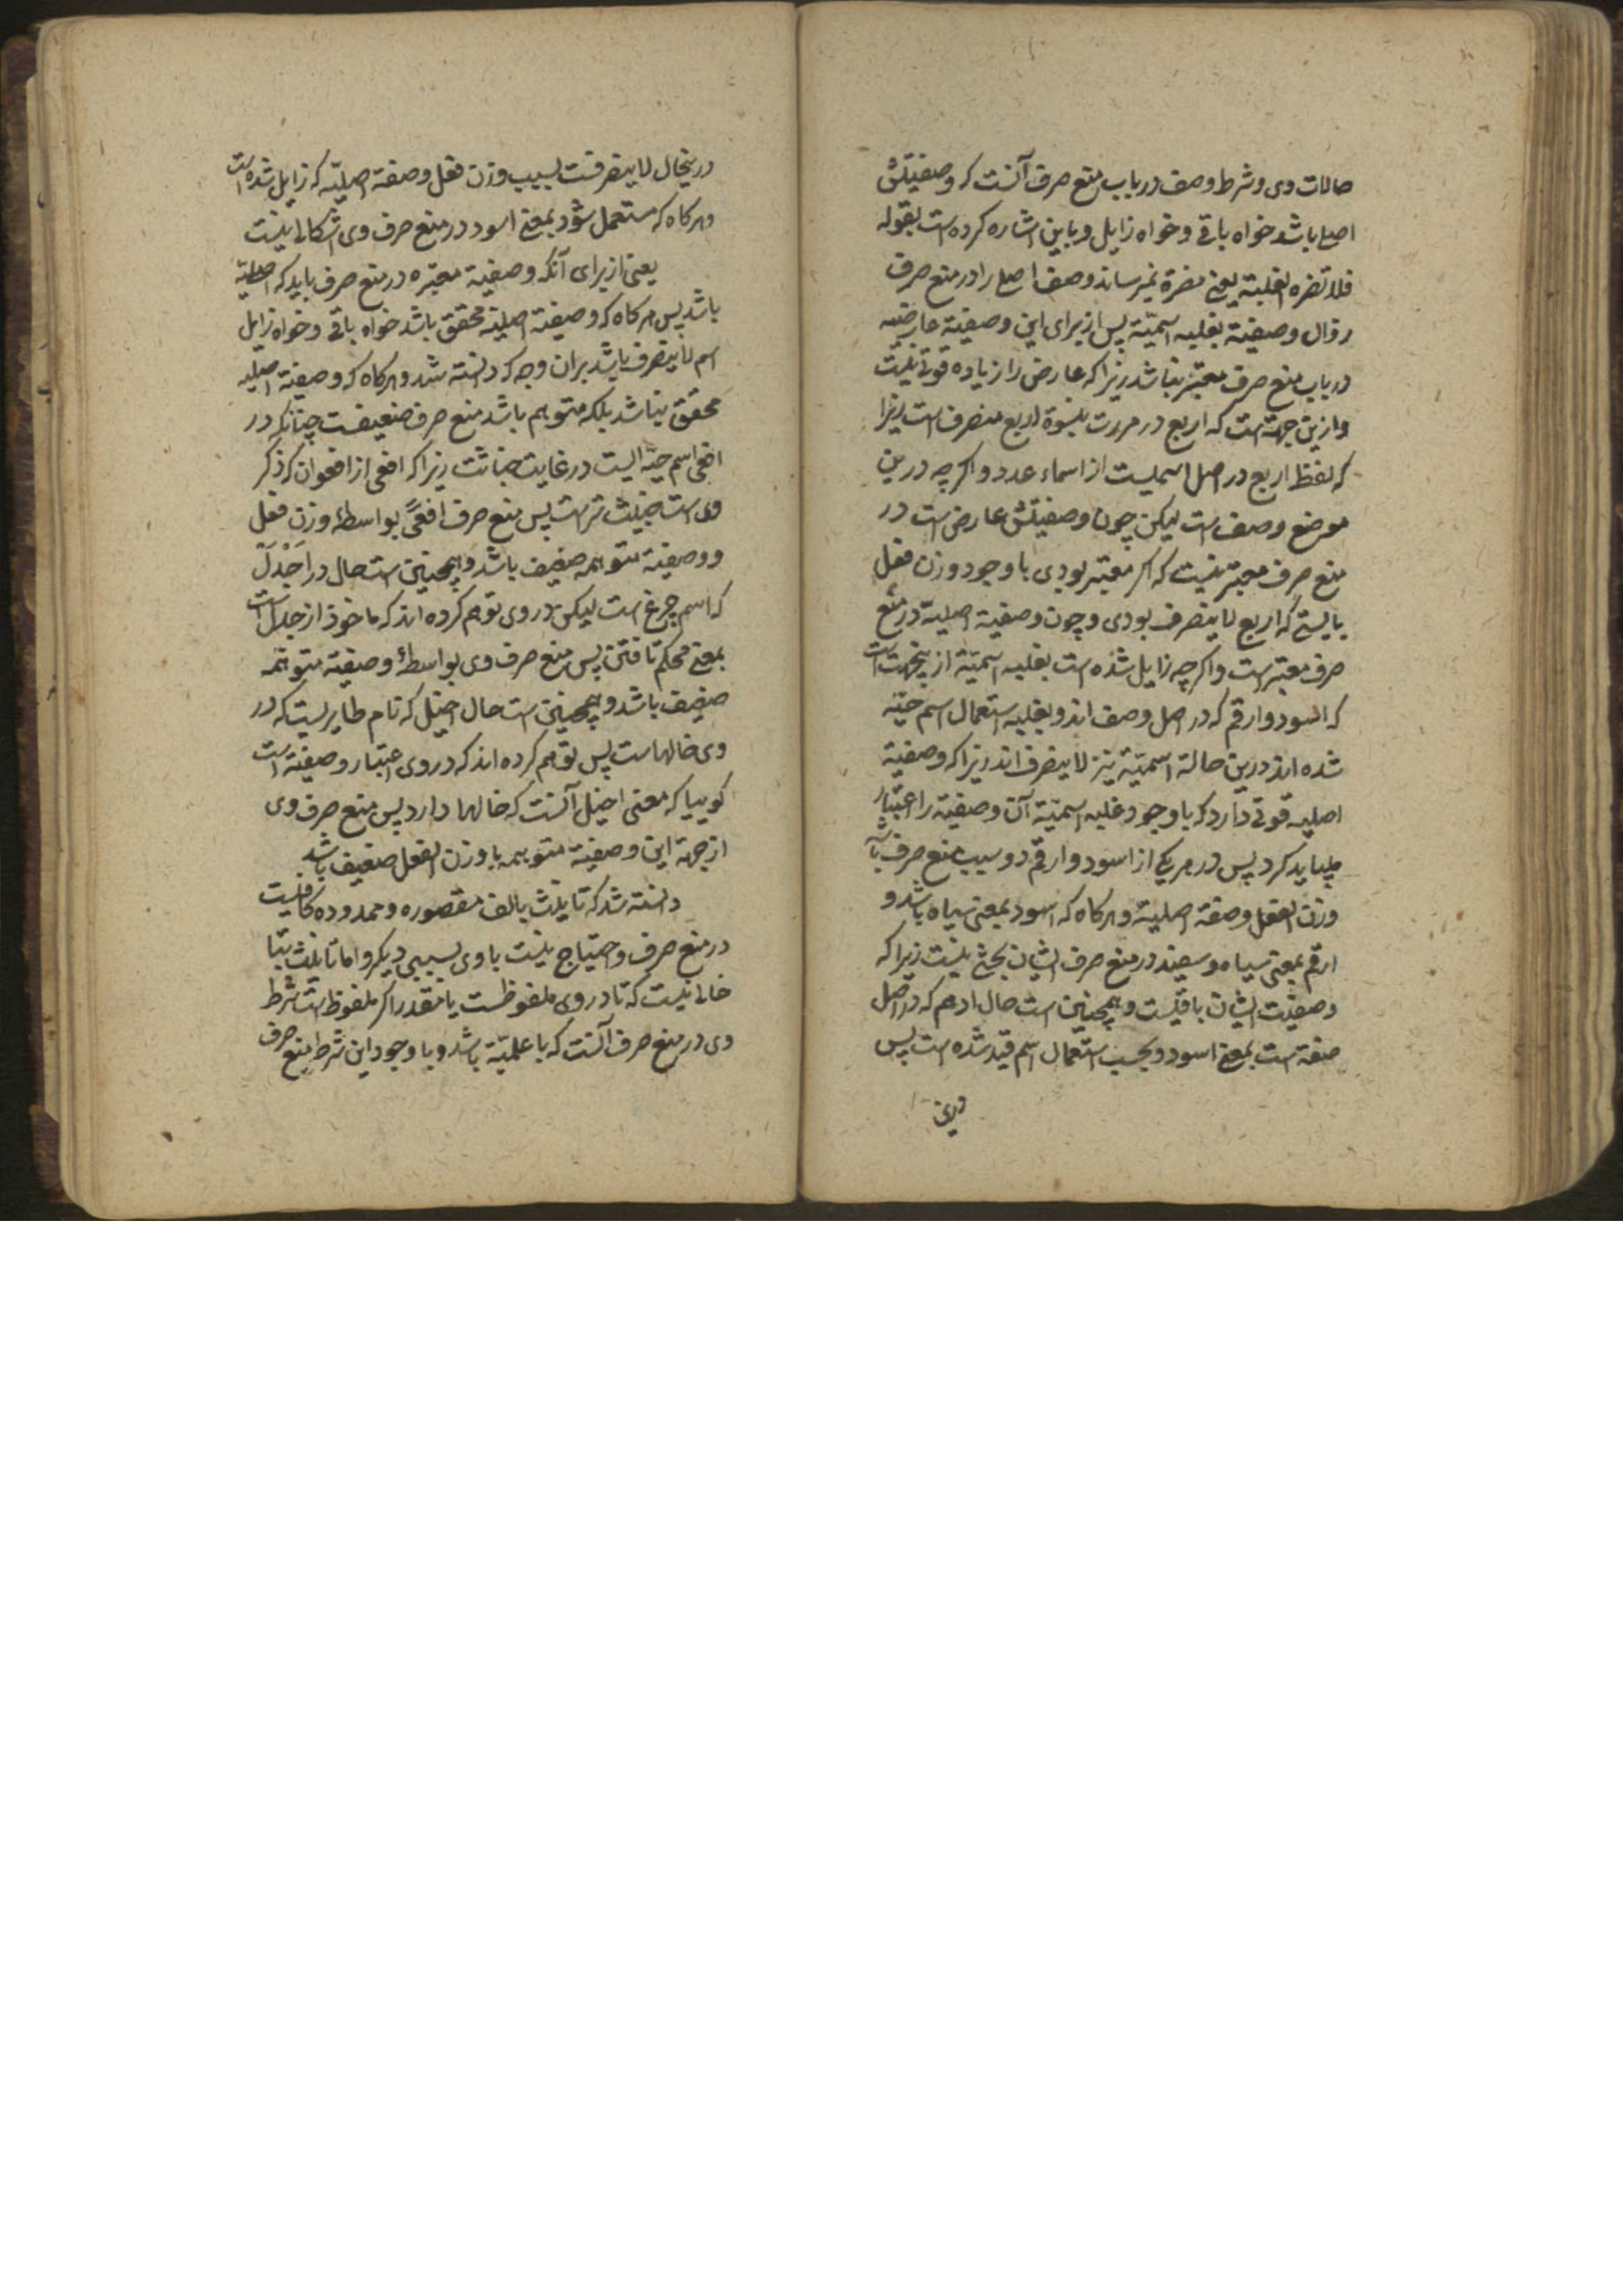 حالات وی و شرط وصف در باب منع صرف آنست که وصفیتش
اصلی باشد خواه باقی و خواه زایل و باین اشاره کرده است بقوله
فلا تضره الغلبة یعنی مضرة نمیرساند وصف اصلی را در منع صرف
زوال وصفیة بغلبه اسمیّة پس از برای این وصفیة عارضیه
در باب منع صرف معتبر نباشد زیرا که عارض را زیاده قوتی نیست
و ازین جهتست که اربع در مررت بنسوة اربع منصرف است زیرا
که لفظ اربع در اصل اسمیست از اسماء عدد و اکرچه درین
موضع وصف است لیکن چون وصفیتش عارض است در
منع صرف معتبر نیست که اکر معتبر بودی با وجود وزن فعل
بایستی که اربع لا ینصرف بودی و چون وصفیة اصلیة در منع
صرف معتبرست و اکرچه زایل شده است بغلبه اسمیّة ازینجهت است
که اسود و ارقم که در اصل وصف اند و بغلبه استعمال اسم حیّة
شده اند درین حالة اسمیّة نیز لا ینصرف اند زیرا که وصفیة
اصلیه قوتی دارد که با وجود غلبه اسمیّة آن وصفیة را اعتبار
میباید کرد پس در هر یکی از اسود و ارقم دو سبب منع صرف باشد
وزن الفعل وصفة اصلیة و هر کاه که اسود بمعنی سیاه باشد و
ارقم بمعنی سیاه و سفید در منع صرف ایشان بحثی نیست زیرا که
وصفیت ایشان باقیست و همچنین است حال ادهم که در اصل
صفة است بمعنی اسود و بحسب استعمال اسم قید شده است پس
درین
درینحال لا ینصرفست بسبب وزن فعل وصفة اصلیّه که زایل شده است
و هر کاه که مستعمل شود بمعنی اسود در منع صرف وی اشکالی نیست
یعنی از برای آنکه وصفیة معتبره در منع صرف باید که اصلیة
باشد پس هر کاه که وصفیة اصلیة محقق باشد خواه باقی و خواه زایل
اسم لا ینصرف باشد بران وجه که دانسته شد و هر کاه که وصفیة اصلیه
محقق نباشد بلکه متوهم باشد منع صرف ضعیفست چنانکه در
افعی اسم حیّه ایست در غایت خباثت زیرا که افعی از افعوان که ذکر
وی است خبیث ترست پس منع صرف افعیً بواسطهٔ وزن فعل
و وصفیة متوهمه ضعیف باشد و همچنین است حال در اَجْدَلَ
که اسم چرغ است لیکن در وی توهم کرده اند که ماخوذ از جدل است
بمعنی محکم تافتن پس منع صرف وی بواسطهٔ وصفیة متوهمه
ضعیف باشد و همچنین است حال اخیل که نام طایریست که در
وی خالهاست پس توهم کرده اند که در وی اعتبار وصفیة است
کوییا که معنی اخیل آنست که خالها دارد پس منع صرف وی
از جهة این وصفیة متوهمه با وزن الفعل ضعیف باشد
دانسته شد که تانیث بالف مقصوره و ممدوده کافیست
در منع صرف و احتیاج نیست با وی بسببی دیکر و اما تانیث بتا
خالی نیست که تا در وی ملفوظست یا مقدر اکر ملفوظ است شرط
وی در منع صرف آنست که با علمیّة باشد و با وجود این شرط منع صرف